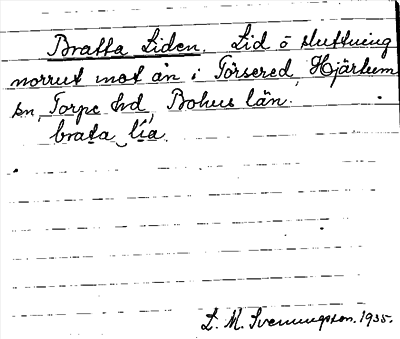 Bratta Liden. Lid o sluttning
norrut mot ån i Torsered, Hjärtum
sn, Torpe hd, Bohus län.
brata lia.
L. M. Svenungsson. 1935.